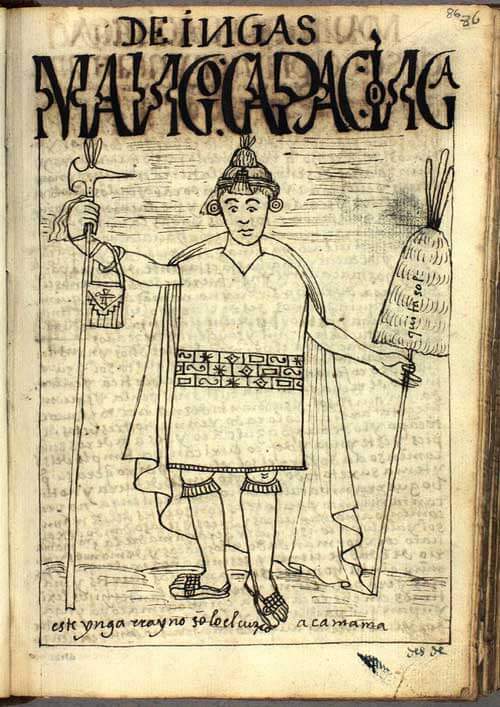 86
86
DE INGAS
MANGO CAPAC INGA
quitasol
este ynga rreyno solo el cuzco acamama
des de